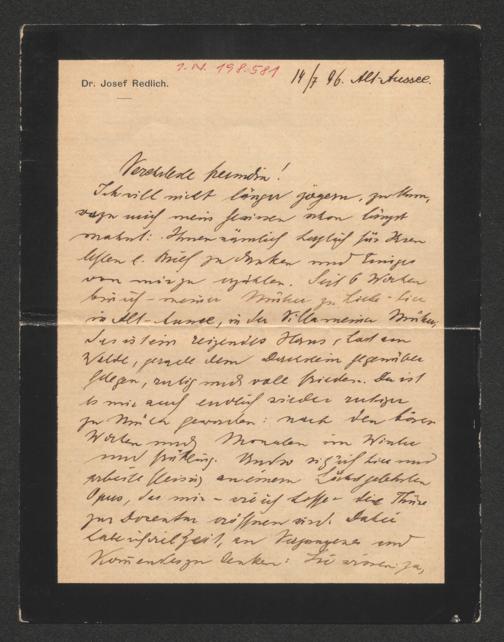 Dr. Josef Redlich.
I.N. 198.581
14/7 96. Alt-Aussee.
Verehrteste Freundin!
Ich will nicht länger zögern, zu thun,
wozu mich mein Gewissen schon längst
mahnt: Ihnen nämlich herzlich für Ihren
letzten l. Brief zu danken und Einiges
von mir zu erzählen. Seit 6 Wochen
bin ich – meiner Mutter zu Liebe – hier
in Alt-Aussee, in der Villa meiner Mutter,
das ist ein reizendes Haus, hart am
Walde, gerade dem Dachstein gegenüber
gelegen, ruhig und voll Frieden. Da ist
es mir auch endlich wieder ruhiger
zu Muthe geworden: nach den bösen
Wochen und Monaten im Winter
und Frühling. Und so sitz ich hier und
arbeite fleissig an einem Opus, das mir – wie ich hoffe – die Thüre
zur Docentur eröffnen wird. Dabei
habe ich viel Zeit, an Vergangenes und
Kommendes zu denken: Sie wissen ja,